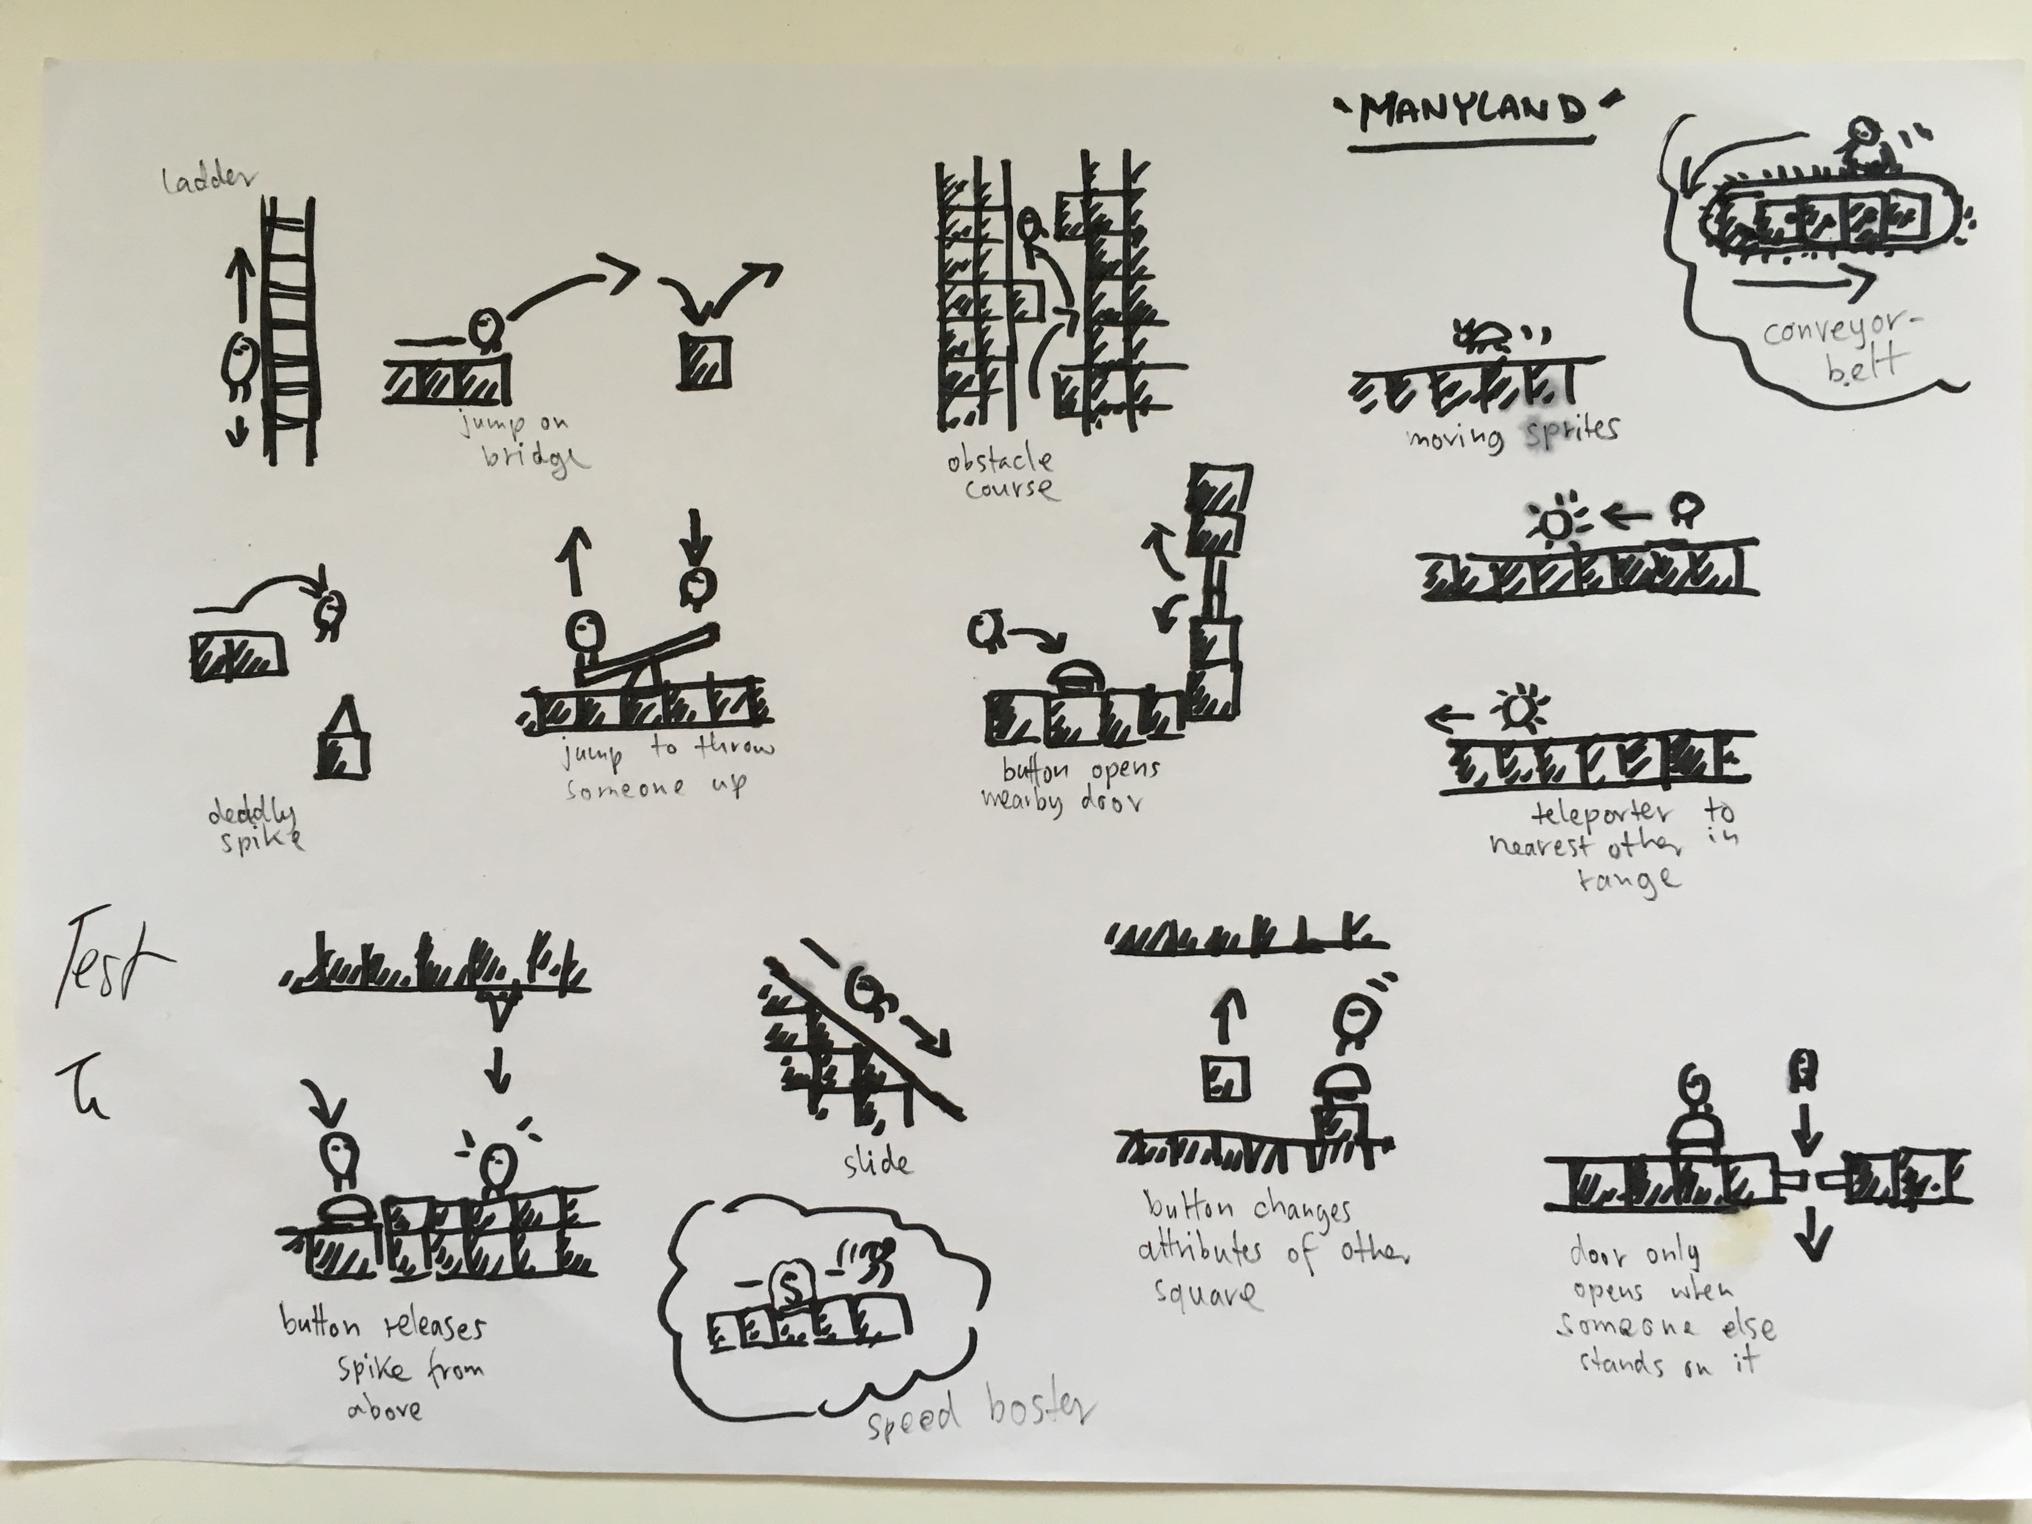 "MANYLAND"
ladder
jump on
bridge
obstacle
course
moving sprites
conveyor-
belt
deadly
spike
jump to throw
someone up
button opens
nearby door
teleporter to
nearest other in
range
Test
button releases
spike from
above
slide
S
speed boster
button changes
attributes of other
square
door only
opens when
someone else
stands on it